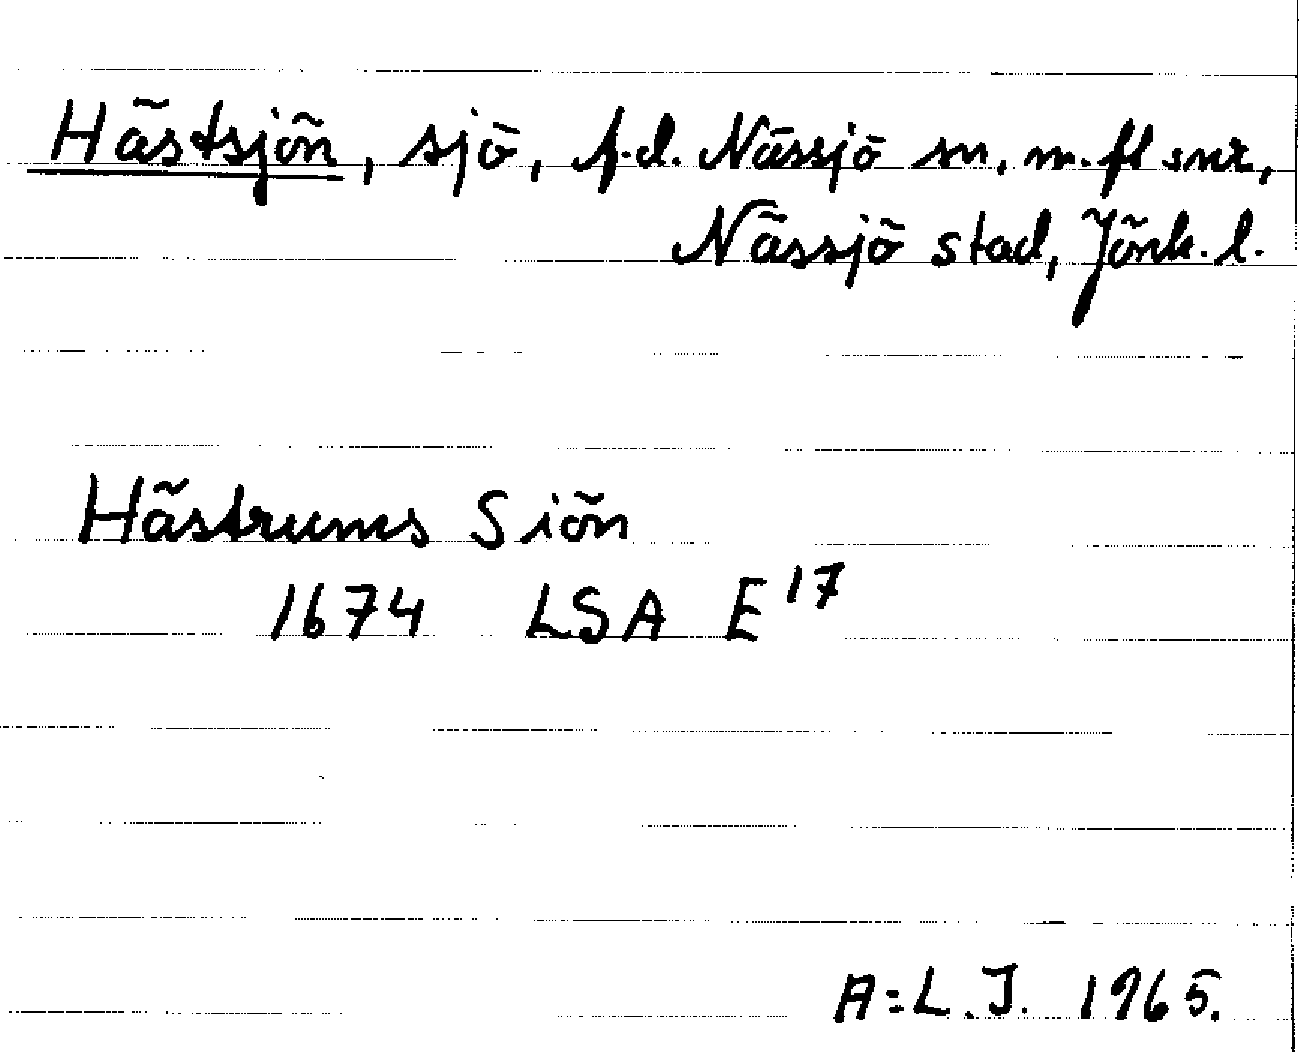 Hästsjön, sjö, f.d. Nässjö sn, m.fl snr,
Nässjö stad, Jönk. l.
Hästrums Siön
1674 LSA E 17
A:L.J. 1965.